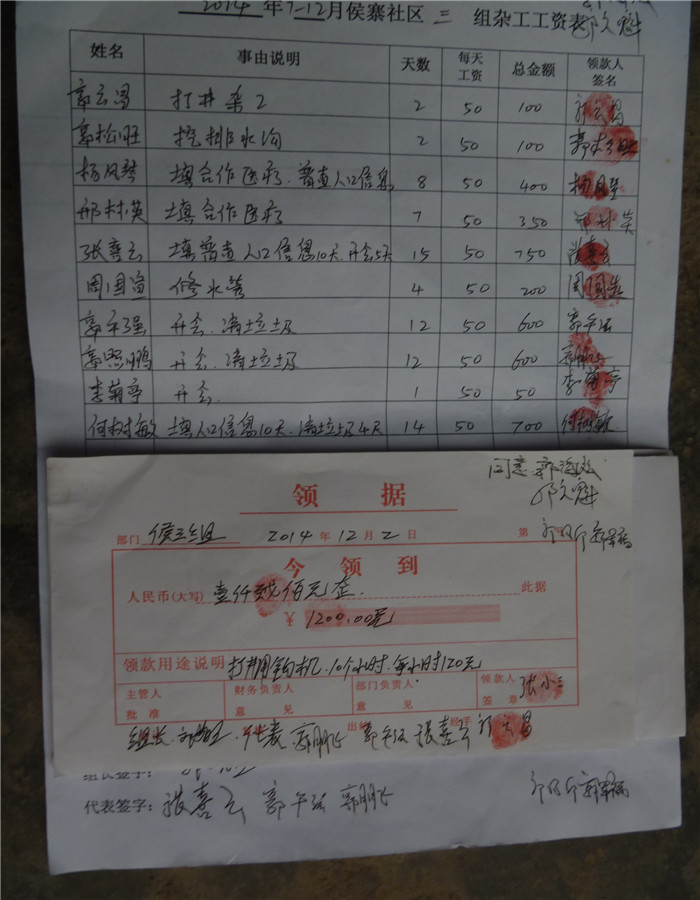 2014 年7-12月侯寨社区 三 组杂工工资表
姓名 事由说明 天数 每天工资 总金额 领款人签名
郭云昌 打井杂工 2 50 100
郭松旺 挖排水沟 2 50 100
杨凤琴 填合作医疗、普查人口信息 8 50 400
邢树英 填合作医疗 7 50 350
张喜云 填普查人口信息10天、开会5天 15 50 750
周国宣 修水管 4 50 200
郭午强 开会、清垃圾 12 50 600
郭鹏 开会、清垃圾 12 50 600
李菊亭 开会 1 50 50
何树敏 填人口信息10天、清垃圾4天 14 50 700
同意
领 据
部门 侯三组 2014 年 12 月 2 日 第
今领到
人民币(大写) 壹仟贰佰元正 此据
¥ 1200.00元
领款用途说明 打井用钩机、10个小时、每小时120元
主管人批准 财务负责人意见 部门负责人意见 领款人签章 张小三
出纳 经手
组长 代表 郭鹏飞 郭午强 张喜云 郭云昌
组长签字:
代表签字: 张喜云 郭午强 郭鹏飞